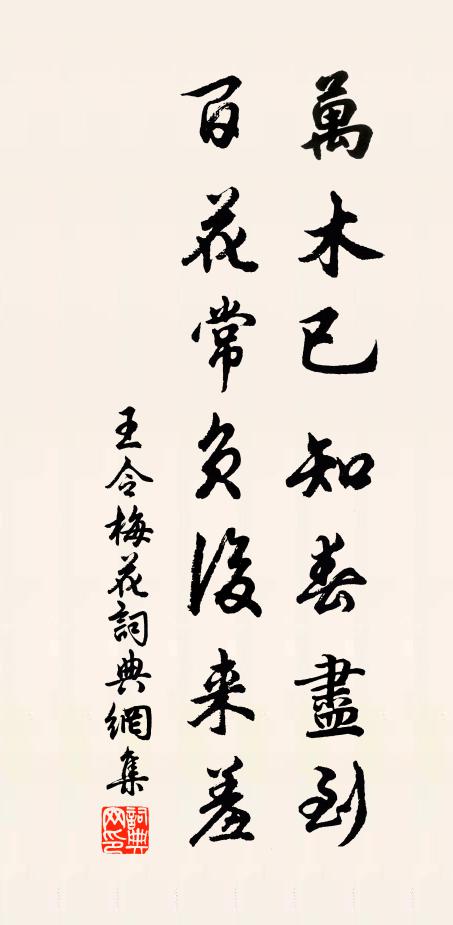 萬木已知春盡到
百花常負後来羞
王令梅花詞典網集
詞典网印